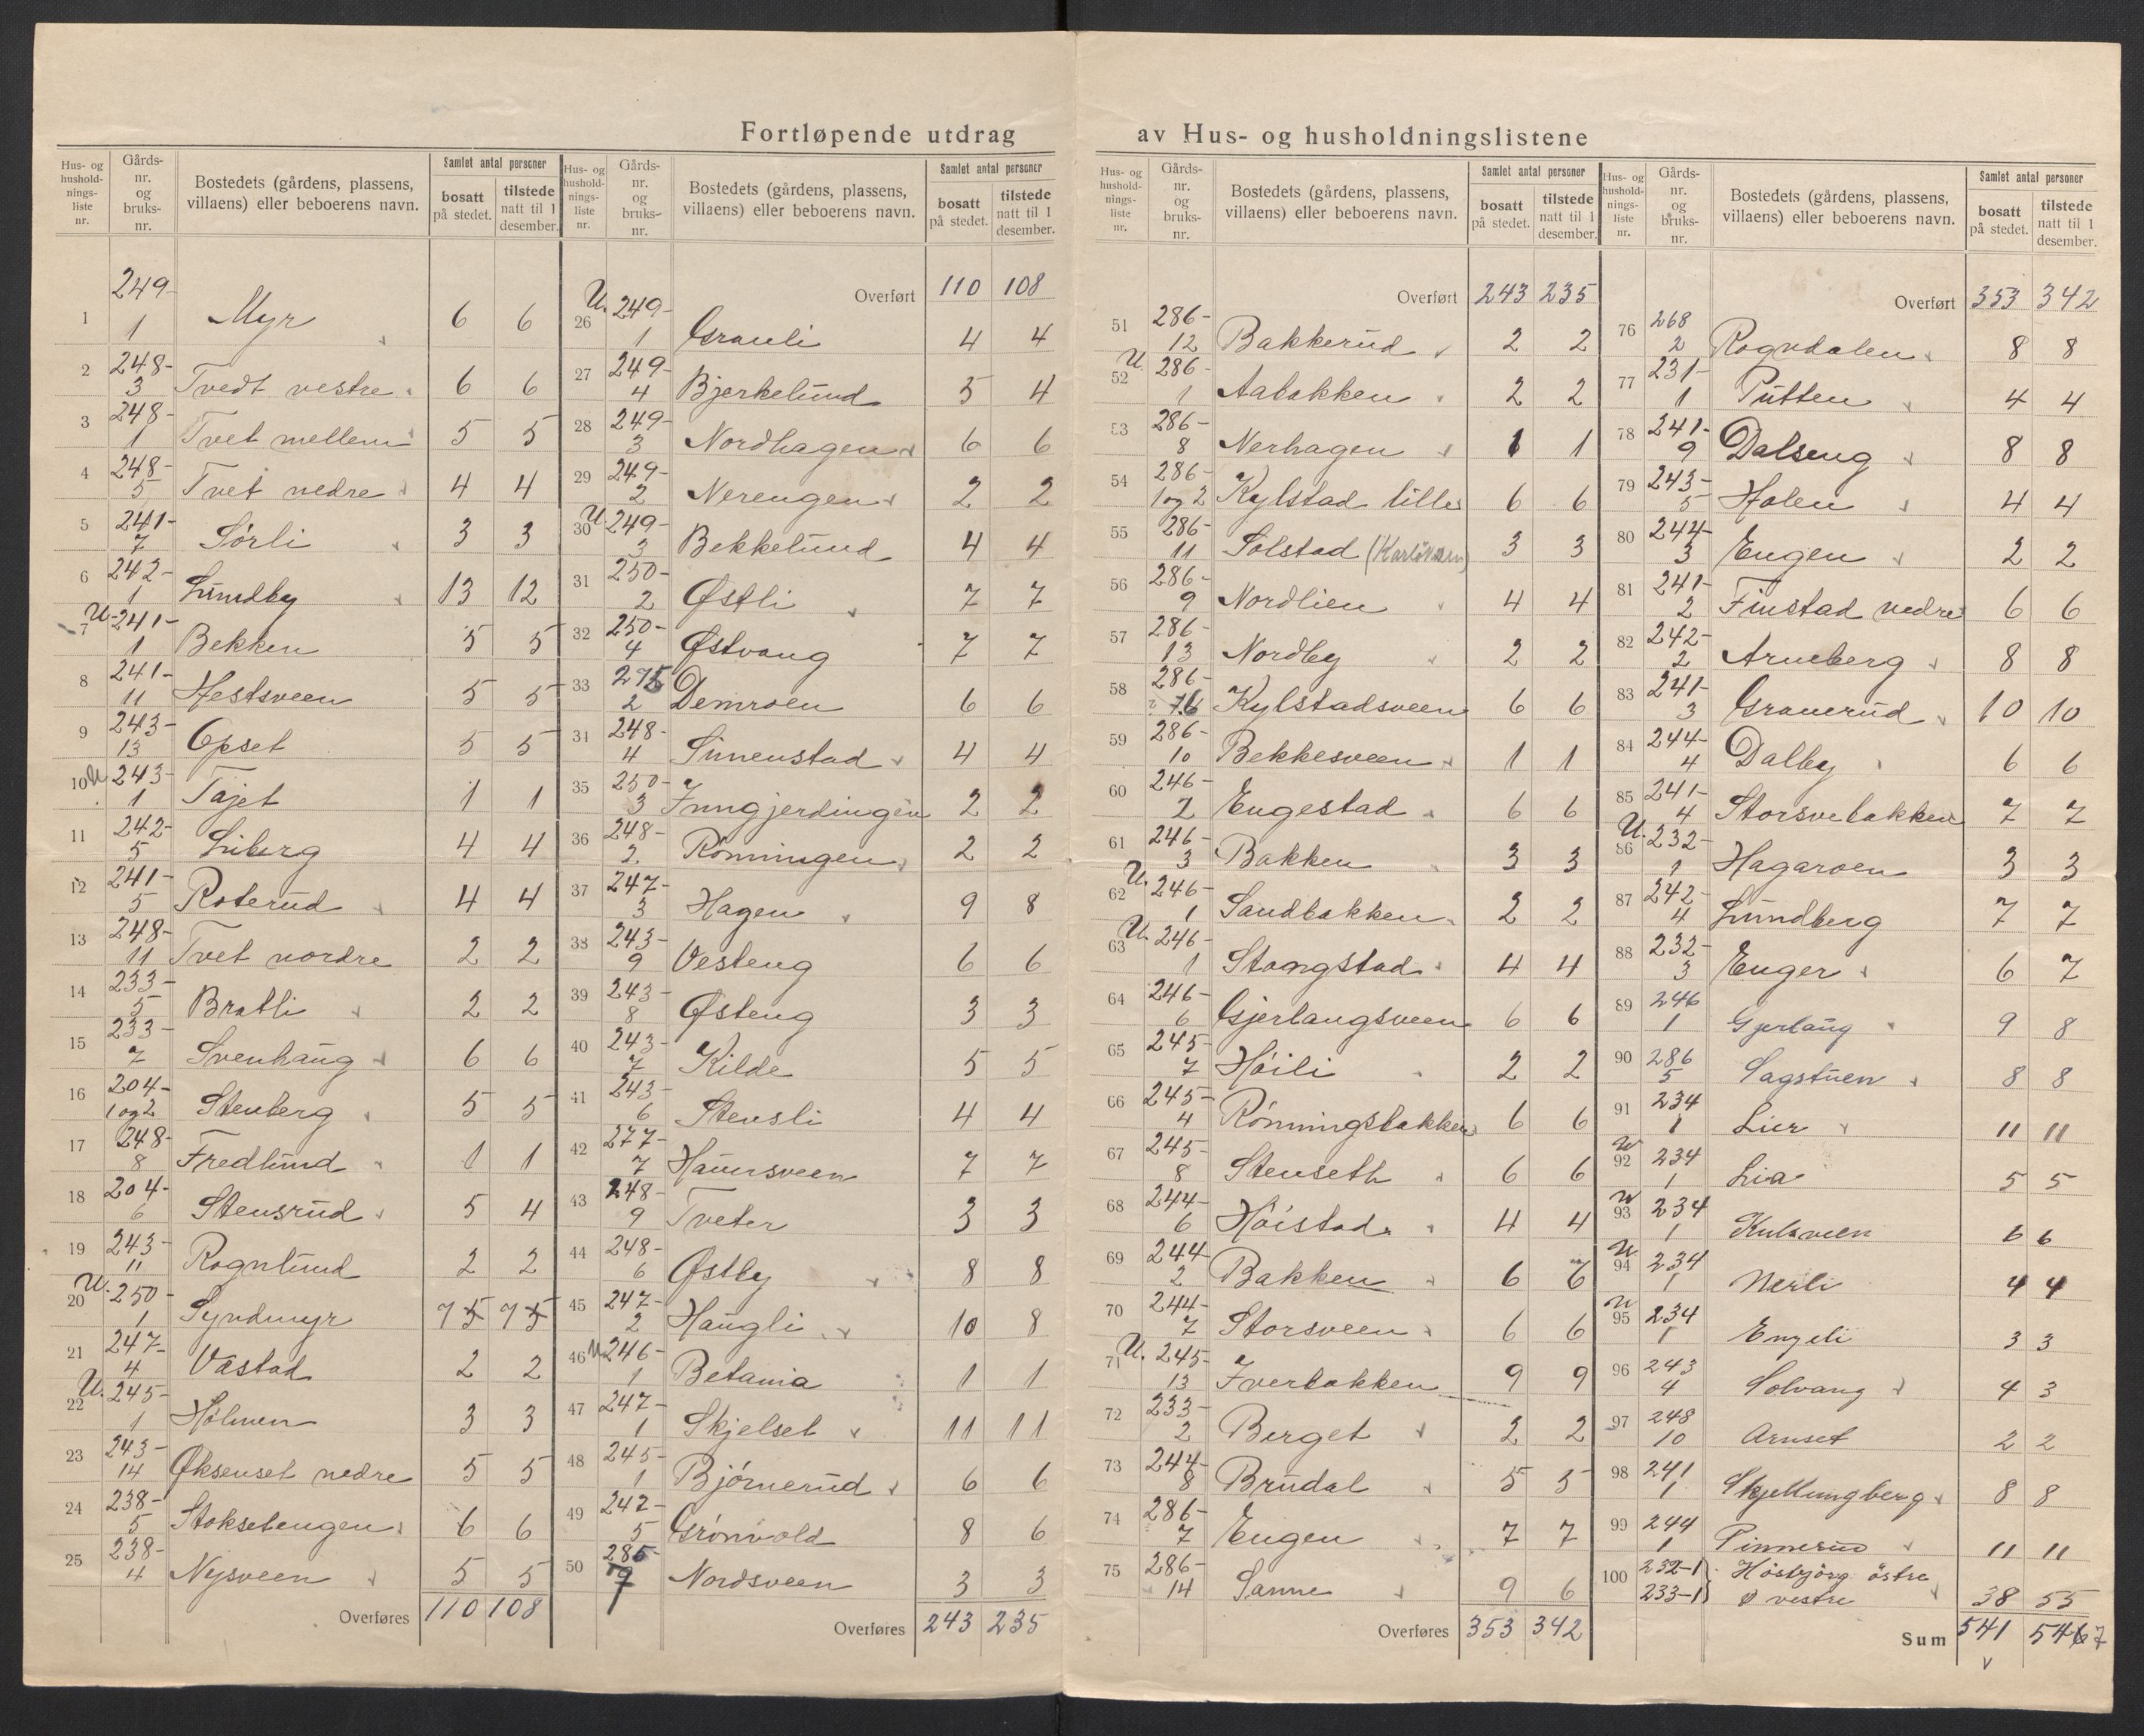 Fortløpende utdrag av Hus- og husholdningslistene
Hus- og hushold-nings-liste nr. Gårds-nr. og bruks-nr. Bostedets (gårdens, plassens, villaens) eller beboerens navn. Samlet antal personer bosatt på stedet. tilstede natt til 1 desember.
1 249-1 Myr 6 6
2 248-3 Tvedt vestre 6 6
3 248-1 Tvet mellem 5 5
4 248-5 Tvet nedre 4 4
5 241-7 Sørli 3 3
6 242-1 Lundby 13 12
U. 7 241-1 Bekken 5 5
8 241-11 Hestsveen 5 5
9 243-13 Opset 5 5
U 10 243-1 Tajet 1 1
11 242-5 Liberg 4 4
12 241-5 Roterud 4 4
13 248-11 Tvet nordre 2 2
14 233-5 Bratli 2 2
15 233-7 Svenhaug 6 6
16 204-1 og 2 Stenberg 5 5
17 248-8 Fredlund 1 1
18 204-6 Stensrud 5 4
19 243-11 Rognlund 2 2
U. 20 250-1 Syndmyr 7 5 7 5
21 247-4 Vastad 2 2
U. 22 245-1 Holmen 3 3
23 243-14 Øksenset nedre 5 5
24 238-5 Stoksetengen 6 6
25 238-4 Nysveen 5 5
Overføres 110 108
Hus- og hushold-nings-liste nr. Gårds-nr. og bruks-nr. Bostedets (gårdens, plassens, villaens) eller beboerens navn. Samlet antal personer bosatt på stedet. tilstede natt til 1 desember.
Overført 110 108
U. 26 249-1 Granli 4 4
27 249-4 Bjerkelund 5 4
28 249-3 Nordhagen 6 6
29 249-2 Nerengen 2 2
U 30 249-3 Bekkelund 4 4
31 250-2 Østli 7 7
32 250-4 Østvang 7 7
33 275 2 Demroen 6 6
34 248-4 Sinnenstad 4 4
35 250-3 Inngjerdingen 2 2
36 248-2 Rønningen 2 2
37 247-3 Hagen 9 8
38 243-9 Vesteng 6 6
39 243-8 Østeng 3 3
40 243-7 Kilde 5 5
41 243-6 Stensli 4 4
42 277-7 Haversveen 7 7
43 248-9 Tveter 3 3
44 248-6 Østby 8 8
45 247-2 Haugli 10 8
U 46 246-1 Betania 1 1
47 247-1 Skjelset 11 11
48 245-1 Bjørnerud 6 6
49 247-5 Grønvold 8 6
50 285-7 Nordsveen 3 3
Overføres 243 235
Hus- og hushold-nings-liste nr. Gårds-nr. og bruks-nr. Bostedets (gårdens, plassens, villaens) eller beboerens navn. Samlet antal personer bosatt på stedet. tilstede natt til 1 desember.
Overført 243 235
51 286-12 Bakkerud 2 2
U. 52 286-1 Aabakken 2 2
53 286-8 Nerhagen 1 1
54 286-1 og 2 Kylstad lille 6 6
55 286-11 Solstad 3 3
56 286-9 Nordlien 4 4
57 286-13 Nordby 2 2
58 286-6 Kylstadsveen 6 6
59 286-10 Bekkesveen 1 1
60 246-2 Engestad 6 6
61 246-3 Bakken 3 3
U. 62 246-1 Sandbakken 2 2
U. 63 246-1 Stangstad 4 4
64 246-6 Gjerlaugsveen 6 6
65 245-7 Høili 2 2
66 245-4 Rønningsbakken 6 6
67 245-8 Stenseth 6 6
68 244-6 Høistad 4 4
69 244-2 Bakken 6 6
70 244-7 Storsveen 6 6
U. 71 245-13 Iverbakken 9 9
72 233-2 Berget 2 2
73 244-8 Brudal 5 5
74 286-7 Engen 7 7
75 286-14 Sanne 9 6
Overføres 353 342
Hus- og hushold-nings-liste nr. Gårds-nr. og bruks-nr. Bostedets (gårdens, plassens, villaens) eller beboerens navn. Samlet antal personer bosatt på stedet. tilstede natt til 1 desember.
Overført 353 342
76 268 2 Rogndalen 8 8
77 231-1 Putten 4 4
78 241-9 Dalseng 8 8
79 243-5 Holen 4 4
80 244-3 Engen 2 2
81 241-2 Finstad nedre 6 6
82 242-2 Arneberg 8 8
83 241-3 Graverud 10 10
84 244-4 Dalby 6 6
85 241-4 Storsvebakken 7 7
U. 86 232-1 Hagaroen 3 3
87 242-4 Lundberg 7 7
88 232-3 Enger 6 7
89 246 1 Gjerlaug 9 8
90 286 5 Sagstuen 8 8
91 234 1 Lier 11 11
U 92 234 1 Lia 5 5
U 93 234 1 Kulsveen 6 6
U 94 234 1 Nerli 4 4
U 95 234 1 Engeli 3 3
96 243 4 Solvang 4 3
97 248 10 Arnset 2 2
98 241 1 Skjellungberg 8 8
99 244 1 Pinnerud 11 11
100 232-1 } Høsbjørg östre
233-1 } Ø vestre 38 55
Sum 541 546 7